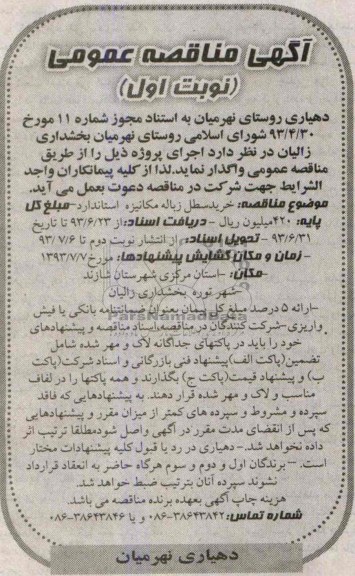 آگهی مناقصه عمومی
(نوبت اول)
دهیاری روستای نهرمیان به استناد مجوز شماره ۱۱ مورخ
۹۳/۴/۳۰ شورای اسلامی روستای نهرمیان بخشداری
زالیان در نظر دارد اجرای پروژه ذیل را از طریق
مناقصه عمومی واگذار نماید.لذا از کلیه پیمانکاران واجد
الشرایط جهت شرکت در مناقصه دعوت بعمل می آید.
موضوع مناقصه: خریدسطل زباله مکانیزه استاندارد-مبلغ کل
پایه: ۴۲۰میلیون ریال -دریافت اسناد:از ۹۳/۶/۲۳ تا تاریخ
۹۳/۶/۳۱ -تحویل اسناد: از انتشار نوبت دوم تا ۹۳/۷/۶
- زمان و مکان گشایش پیشنهادها: مورخ۱۳۹۳/۷/۷
-مکان: -استان مرکزی شهرستان شازند
-شهر توره بخشداری زالیان
-ارائه ۵ درصد مبلغ کل پیمان بعنوان ضمانتنامه بانکی یا فیش
واریزی-شرکت کنندگان در مناقصه،اسناد مناقصه و پیشنهادهای
خود را باید در پاکتهای جداگانه لاک و مهر شده شامل
تضمین(پاکت الف)پیشنهاد فنی بازرگانی و اسناد شرکت(پاکت
ب) و پیشنهاد قیمت(پاکت ج) بگذارند و همه پاکتها را در لفاف
مناسب و لاک و مهر شده قرار دهند. به پیشنهادهایی که فاقد
سپرده و مشروط و سپرده های کمتر از میزان مقرر و پیشنهادهایی
که پس از انقضای مدت مقرر در آگهی واصل شودمطلقا ترتیب اثر
داده نخواهد شد.- دهیاری در رد یا قبول کلیه پیشنهادات مختار
است. -- برندگان اول و دوم و سوم هرگاه حاضر به انعقاد قرارداد
نشوند سپرده آنان بترتیب ضبط خواهد شد.
هزینه چاپ آگهی بعهده برنده مناقصه می باشد.
شماره تماس: ۳۸۶۴۳۸۴۲-۰۸۶ و یا ۳۸۶۴۳۸۴۶-۰۸۶
دهیاری نهرمیان